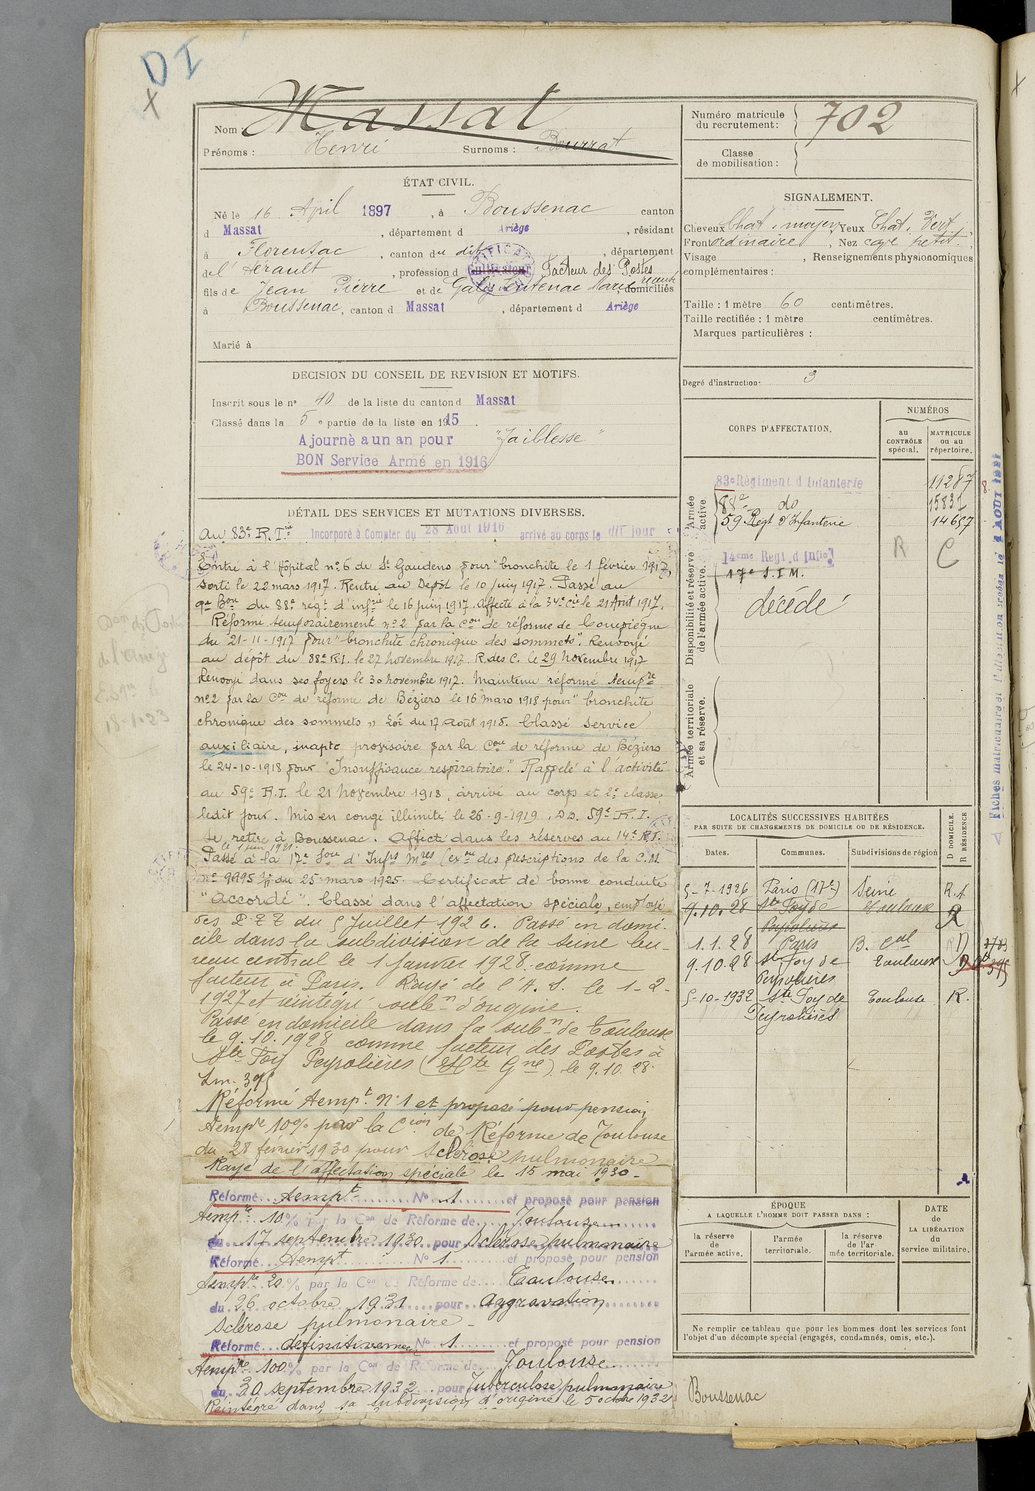 DI
X
Nom Massat
Prénoms : Henri Surnoms : Bourrat
ÉTAT CIVIL.
Né le 16 April 1897, à Boussenac canton
d Massat, département d Ariège, résidant
à Florensac, canton du dit, département
de l'Hérault, profession d Cultivateur Facteur des Postes
fils de Jean Pierre et de Galy domiciliés
à Boussenac, canton d Massat, département d Ariège
Marié à
DÉCISION DU CONSEIL DE REVISION ET MOTIFS.
Inscrit sous le nº 10 de la liste du canton d Massat
Classé dans la 5e partie de la liste en 1915.
Ajourné a un an pour "Faiblesse"
BON Service Armé en 1916
DÉTAIL DES SERVICES ET MUTATIONS DIVERSES.
Au 83e R.I.ie Incorporé à Compter du 28 Aout 1916 arrivé au corps le dit jour
Entré à l'Hôpital nº 6 de St Gaudens pour bronchite le 1 février 1917,
sorti le 22 mars 1917. Rentré au Dépôt le 10 juin 1917. Passé au
9e Bon du 88e régt d'infie le 16 juin 1917. affecté à la 34e Cie le 21 Août 1917.
Réformé temporairement nº 2 par la Con de réforme de Compiègne
du 21-11-1917 pour "bronchite chronique des sommets". Renvoyé
au dépôt du 88e R.I. le 27 novembre 1917. R. des C. le 29 novembre 1917
Renvoyé dans ses foyers le 30 novembre 1917. Maintenu réformé tempre
nº 2 par la Con de réforme de Béziers le 16 mars 1918 pour "bronchite
chronique des sommets" Loi du 17 août 1915. Classé service
auxiliaire, inapte provisoire par la Con de réforme de Béziers
le 24-10-1918 pour "Insuffisance respiratoire". Rappelé à l'activité
au 59e R.I. le 21 novembre 1918, arrivé au corps et 2e classe
ledit jour. Mis en congé illimité le 26-9-1919, D.D. 59e R.I.
se retire à Boussenac. Affecté dans les réserves au 14e R.I.
Passé à la 17e Son d'Infrs Mres (exon des prescriptions de la C.M.
nº 9495 du 25 mars 1925. Certificat de bonne conduite
"Accordé". Classé dans l'affectation spéciale, employé
des P.T.T du 5 Juillet 1926. Passé en domi-
cile dans la subdivision de la Seine bu-
reau central le 1 Janvier 1928 comme
facteur à Paris. Rayé de l'A.S. le 1-2-
1927 et réintégré subon d'origine.
Passé en domicile dans la subon de Toulouse
le 9.10.1928 comme facteur des Postes à
Ste Foy Peyrolières (Hte Gne) le 9.10.28.
Réformé tempt. Nº 1 et proposé pour pension
tempre 10% par la Cion de Réforme de Toulouse
du 28 février 1930 pour sclérose pulmonaire
Rayé de l'affectation spéciale le 15 mai 1930-
Réformé tempt Nº 1 et proposé pour pension
tempre 10% par la Con de Réforme de Toulouse
du 17 septembre 1930 pour sclérose pulmonaire
Réformé tempt Nº 1 et proposé pour pension
tempre 20% par la Con de Réforme de Toulouse
du 26 octobre 1931 pour aggravation
sclérose pulmonaire -
Réformé définitivement Nº 1 et proposé pour pension
tempre 100% par la Con de Réforme de Toulouse
du 30 septembre 1932 pour Tuberculose pulmonaire
Réintégré dans sa subdivision d'origine le 5 octobre 1932
Numéro matricule du recrutement : 702
Classe de mobilisation :
SIGNALEMENT.
Cheveux Chat. moyen, Yeux Chat. Vert
Front ordinaire, Nez cave petit.
Visage , Renseignements physionomiques
complémentaires :
Taille : 1 mètre 60 centimètres.
Taille rectifiée : 1 mètre centimètres.
Marques particulières :
Degré d'instruction : 3
CORPS D'AFFECTATION.
NUMÉROS
au CONTRÔLE spécial.
MATRICULE ou au répertoire.
Armée active.
83e Régiment d'Infanterie 11287
88e do
59 Regt d'Infanterie 14657
R C
Disponibilité et réserve de l'armée active.
14eme Regt d'Infie
17e S.I.M.
décédé
Armée territoriale et sa réserve.
LOCALITÉS SUCCESSIVES HABITÉES
PAR SUITE DE CHANGEMENTS DE DOMICILE OU DE RÉSIDENCE.
Dates. Communes. Subdivisions de région D DOMICILE. R RÉSIDENCE
5-7-1926 Paris (17e) Seine R.
9.10.28 Ste Foy de Peyrolières Toulouse R
1.1.28 Paris B. Cal D
9.10.28 Ste Foy de Peyrolières Toulouse D
5-10-1932 Ste Foy de Peyrolières Toulouse R.
ÉPOQUE
A LAQUELLE L'HOMME DOIT PASSER DANS :
la réserve de l'armée active.
l'armée territoriale.
la réserve de l'ar mée territoriale.
DATE de LA LIBÉRATION du service militaire.
Ne remplir ce tableau que pour les hommes dont les services font
l'objet d'un décompte special (engagés, condamnés, omis, etc.).
Boussenac